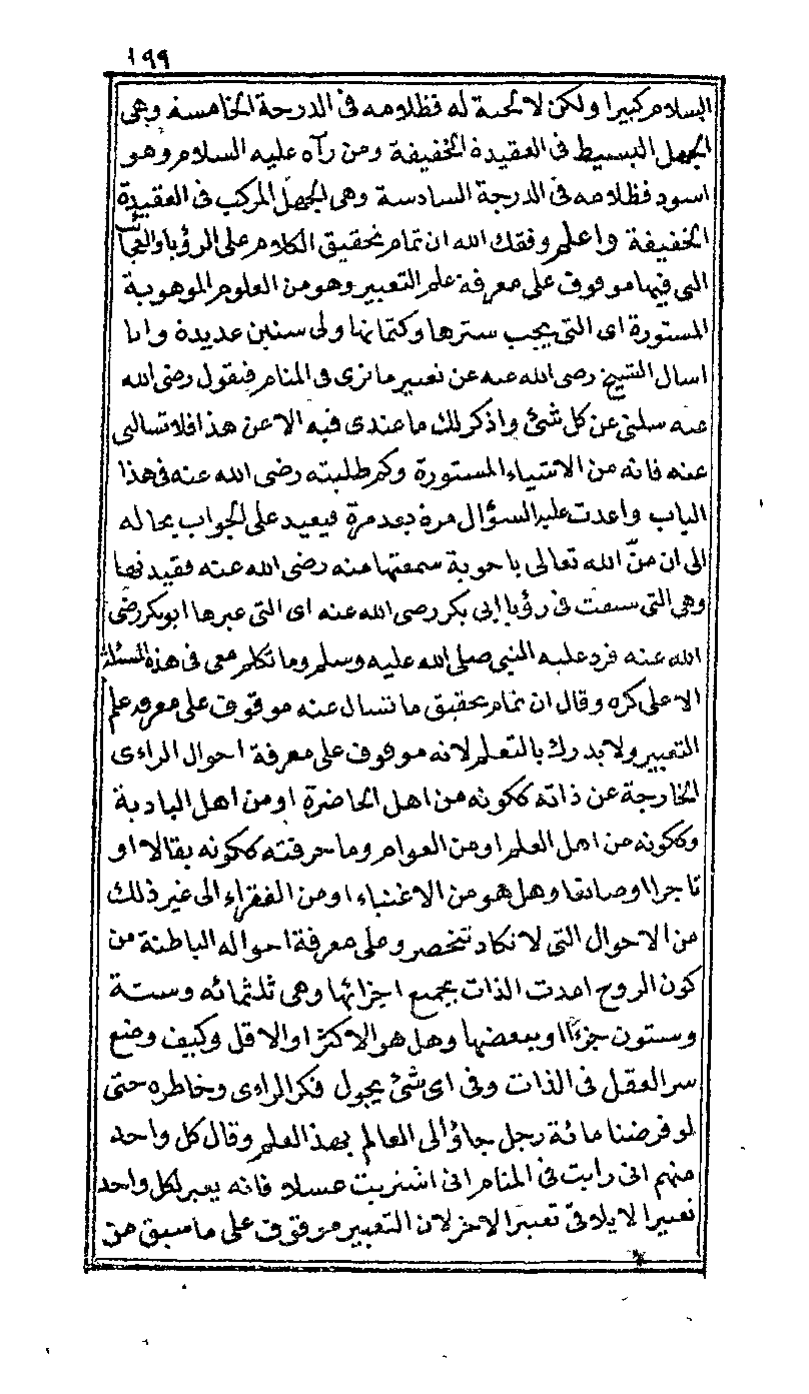 ١٩٩
السلام كبيرا ولكن لا لحية له فظلامه فى الدرجة الخامسة وهى
الجهل البسيط فى العقيدة الخفيفة ومن رآه عليه السلام وهو
اسود فظلامه فى الدرجة السادسة وهى الجهل المركب فى العقيدة
الخفيفة واعلم وفقك الله ان تمام تحقيق الكلام على الرؤيا والعجائب
التى فيها موقوف على معرفة علم التعبير وهو من العلوم الموهوبة
المستورة اى التى يجب سترها وكتمانها ولى سنين عديدة وانا
اسال الشيخ رضى الله عنه عن تعبير ما نرى فى المنام فيقول رضى الله
عنه سلنى عن كل شئ واذكر لك ما عندى فيه الا عن هذا فلا تسالنى
عنه فانه من الاشياء المستورة وكم طلبته رضى الله عنه فى هذا
الباب واعدت عليه السؤال مرة بعد مرة فيعيد على الجواب بحاله
الى ان منّ الله تعالى باجوبة سمعتها منه رضى الله عنه فقيدتها
وهى التى سبقت فى رؤيا ابى بكر رضى الله عنه اى التى عبرها ابو بكر رضى
الله عنه فرد عليه النبى صلى الله عليه وسلم وما تكلم معى فى هذه المسئلة
الا على كره وقال ان تمام تحقيق ما تسال عنه موقوف على معرفة علم
التعبير ولا يدرك بالتعلم لانه موقوف على معرفة احوال الراءى
الخارجة عن ذاته ككونه من اهل الحاضرة او من اهل البادية
وككونه من اهل العلم او من العوام وما حرفته ككونه بقالا او
تاجرا او صانعا وهل هو من الاغنياء او من الفقراء الى غير ذلك
من الاحوال التى لا تكاد تنحصر وعلى معرفة احواله الباطنة من
كون الروح امدت الذات بجميع اجزائها وهى ثلثمائه وستة
وستون جزءًا او ببعضها وهل هو الاكثر او الاقل وكيف وضع
سر العقل فى الذات وفى اى شئ يجول فكر الراءى وخاطره حتى
لو فرضنا مائة رجل جاؤ الى العالم بهذا العلم وقال كل واحد
منهم انى رايت فى المنام انى اشتريت عسلا فانه يعبر لكل واحد
تعبيرا لا يلاقى تعبير الاخر لان التعبير موقوف على ما سبق من